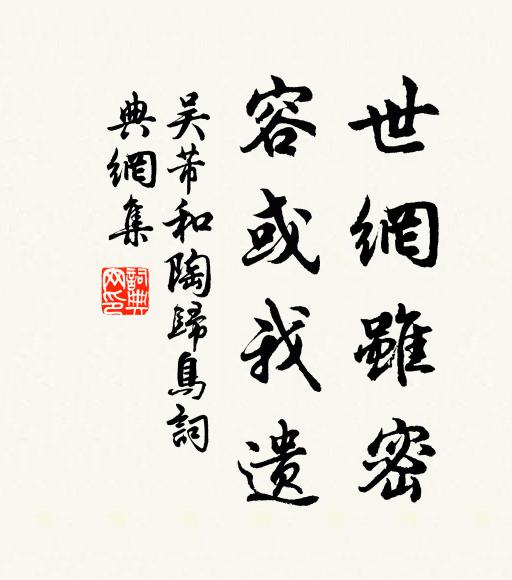 世網雖密
容或我遺
吴芾和陶歸鳥詞
典網集
詞典網印